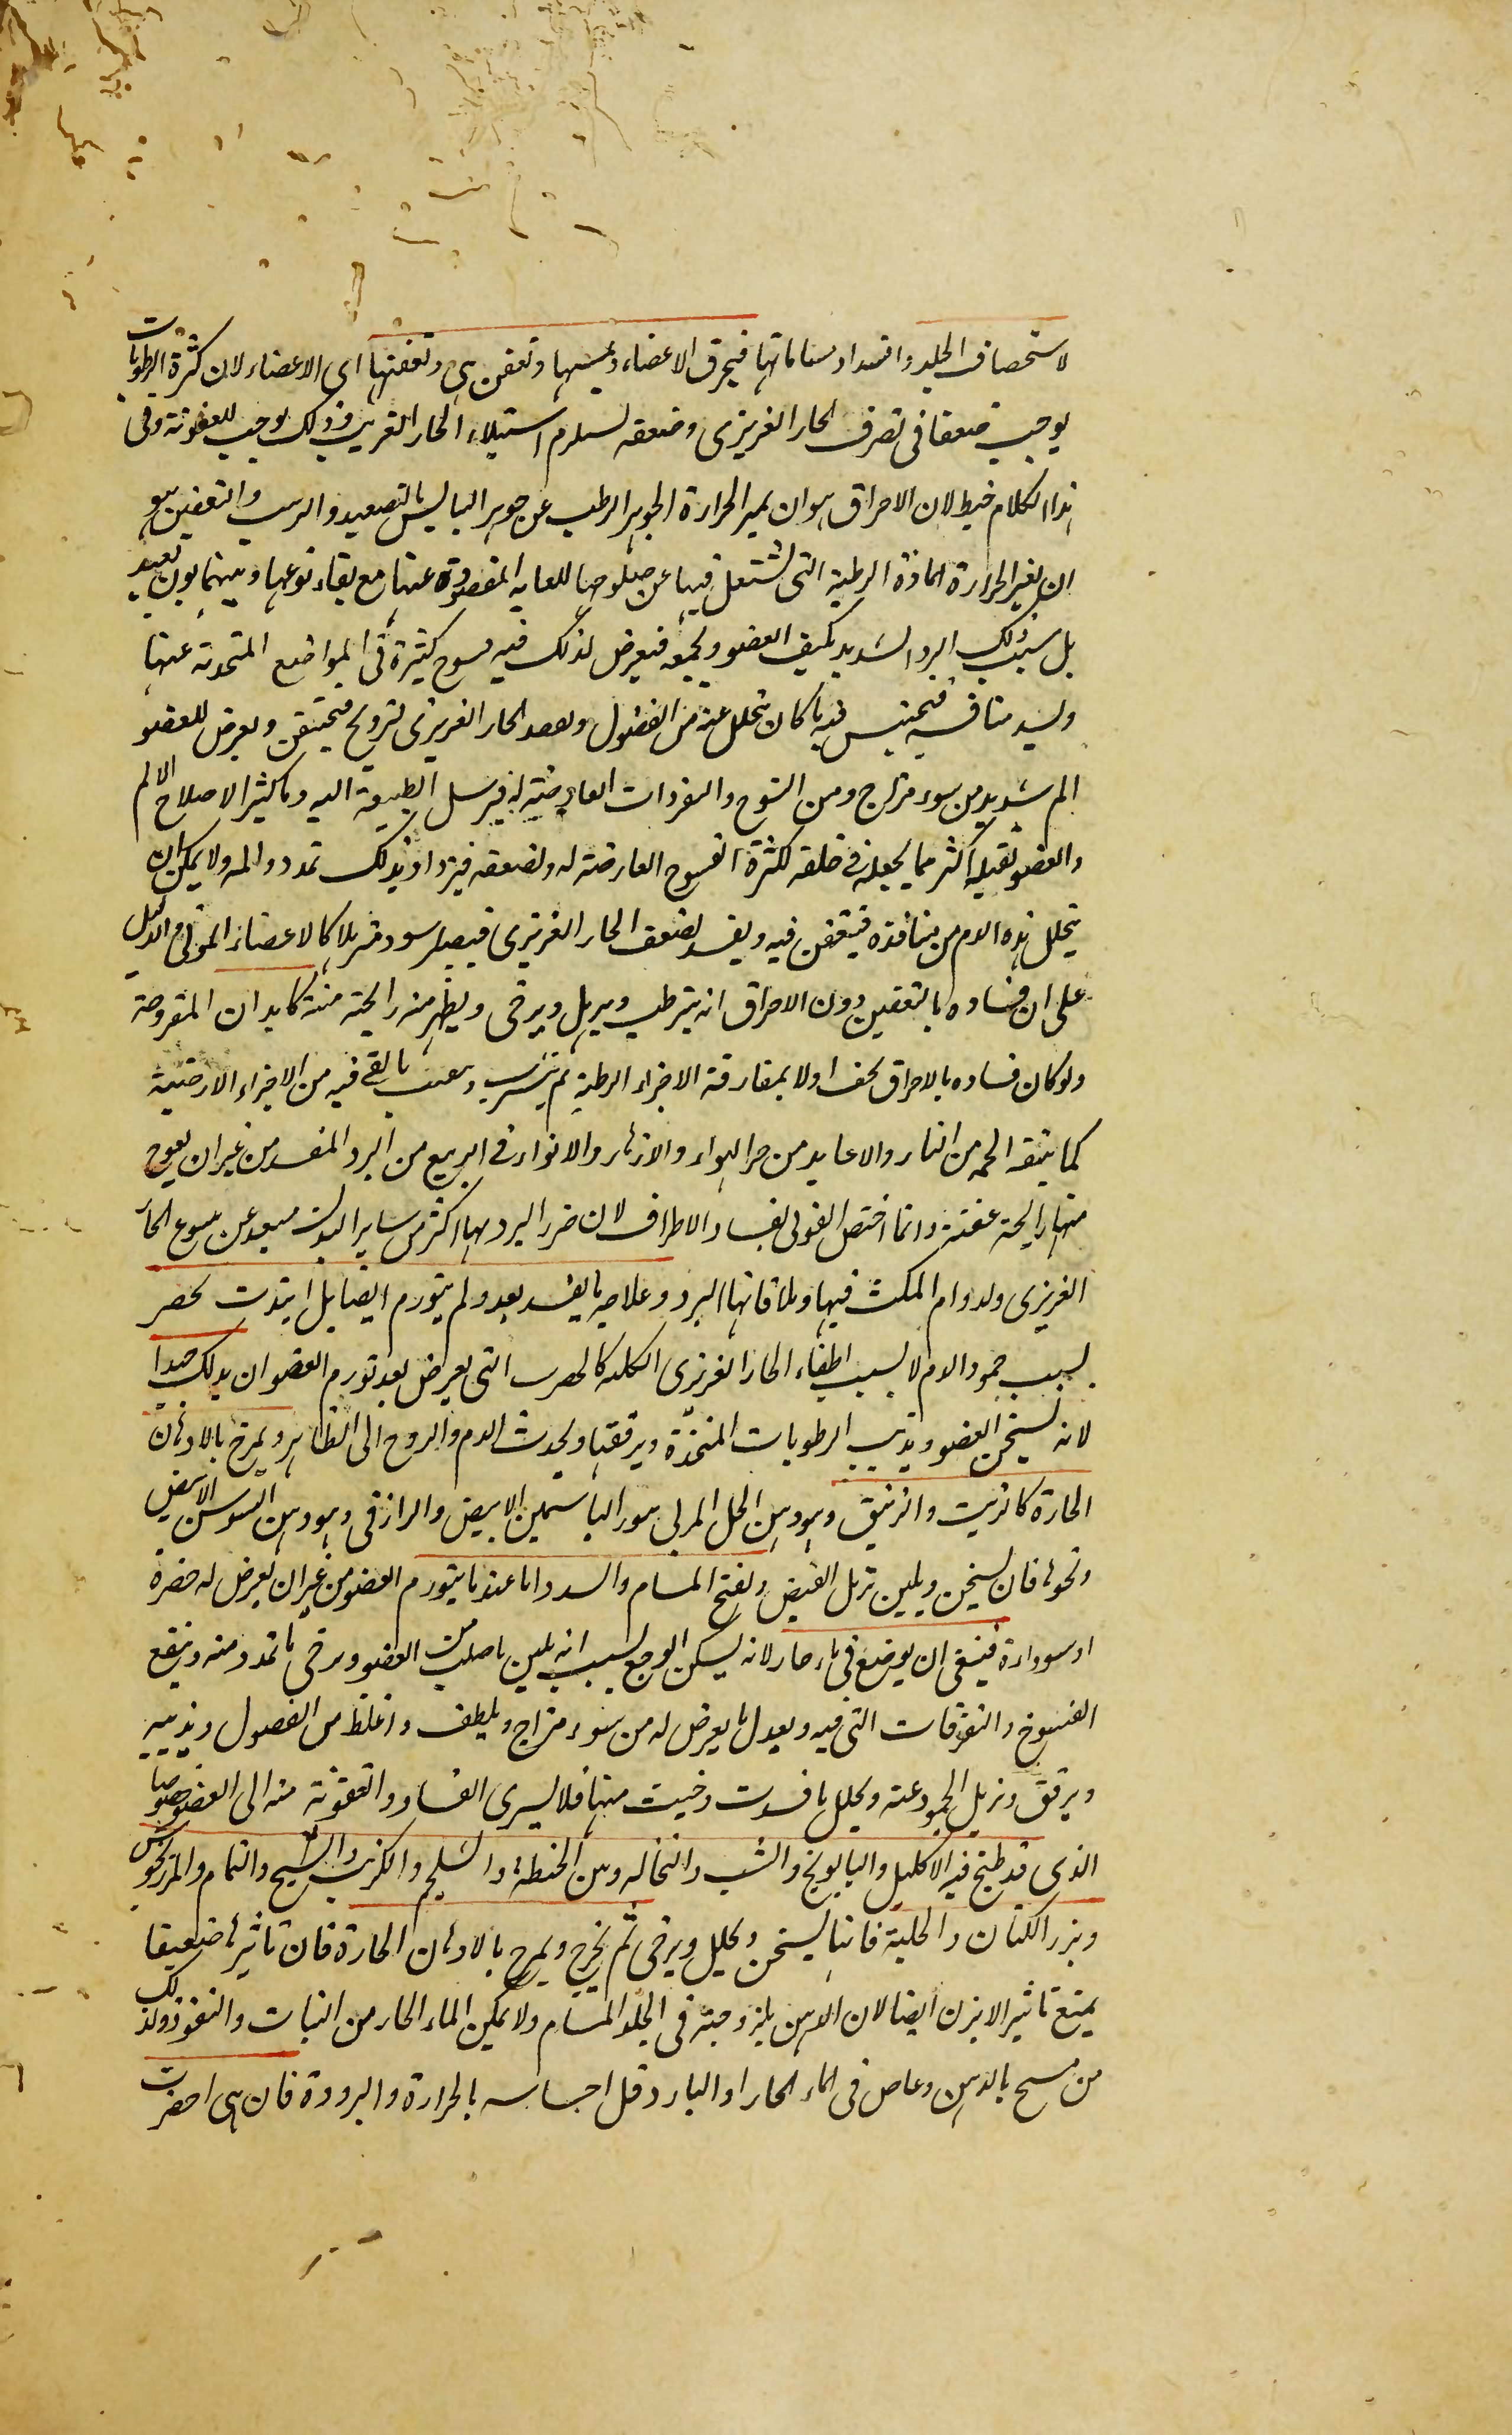 لاستحصاف الجلد وانسداد مساماتها فيحرق الاعضاء ويميتها وتعفن هي وتعفنها اى الاعضاء لان كثرة الرطوبات
يوجب ضعفا فى تصرف الحار الغريزى وضعفه يستلزم استيلاء الحار الغريب وذلك يوجب للعفونة وفى
هذا الكلام خبط لان الاحراق هو ان يميز الحرارة الجوهر الرطب عن جوهر اليابس بالتصعيد والترسيب والتعفين هو
ان يغير الحرارة المادة الرطبة التى تشتعل فيها عن صلوحها للغاية المقصودة عنها مع بقاء نوعها وبينهما بون بعيد
بل سبب ذلك ان البرد الشديد يكثف العضو ويجمعه فيعرض لذلك فيه فسوخ كثيرة فى المواضع المتحدثة عنها
ويسد منافسه فيحتبس فيه ما كان يتحلل عنه من الفضول ويفقد الحار الغريزى الترويح فيختنق ويعرض للعضو
الم شديد من سوء مزاج ومن الفسوخ والتفرقات العارضة له فيرسل الطبيعة اليه دما كثيرا لاصلاح الالم
والعضو يقبله اكثر مما يجعله فى خلقه لكثرة الفسوخ العارضة له ولضعفه فيزداد بذلك تمدده والمه ولا يمكن ان
يتحلل هذه الدم من منافذه فيتعفن فيه ويفسد لضعف الحار الغريزى فيصير اسود مترهلا كالاعضاء الموتى والدليل
على ان فساده بالتعفين دون الاحراق انه يترطب ويترهل ويرخى ويظهر منه رايحة منتنة كابدان المقروحة
ولو كان فساده بالاحراق لجف اولا بمفارقة الاجزاء الرطبة ثم يترسب ما بقى فيه من الاجزاء الارضية
كما يتفق الحمة من النار والاعابد من حر الهواء والازهار والانوار فى الربيع من البرد المفسد من غير ان يفوح
منها رايحة عفنة وانما اختص القول بفساد الاطراف لان ضرر البرد بها اكثر من ساير البدن لبعده عن ينبوع الحار
الغريزى ولدوام المكث فيها وملاقاتها البرد وعلاجه ما لم يفسد بعد ولم يتورم ايضا بل ابتدت تخضر
بسبب جمود الدم لا بسبب اطفاء الحار الغريزى الكلية كالخضرة التى يعرض بعد تورم العضو ان يدلك جيدا
لانه يسخن العضو ويذيب الرطوبات المنجمدة ويرققها ويجذب الدم والروح الى الظاهر ويمرخ بالادهان
الحارة كالزيت والزنبق وهو دهن الحل المربى بورد الياسمين الابيض والرازقى وهو دهن السوسن الابيض
ونحوها فان يسخن ويلين ويزيل القبض ويفتح المسام والسدد اما عندما يتورم العضو من غير ان يعرض له خضرة
او سواده فينبغى ان يوضع فى ماء حار لانه يسكن الوجع بسبب انه يلين ما صلب من العضو ويرخى ما تمدد منه وينفع
الفسوخ والتفرقات التى فيه ويعدل ما يعرض له من سوء مزاج ويلطف ما غلظ من الفضول ويذيبه
ويرقق ويزيل الجمود عنه ويحلل ما فسدت وخبث منها فلا يسرى الفساد والعفونة منه الى العضو خصوصا
الذى قد طبخ فيه الاكليل والبابونج والشبت والنخالة وتبن الحنطة والشلجم والكرنب والشيح والنمام والمرزنجوش
وبزر الكتان والحلبة فانها يسخن ويحلل ويرخى ثم يخرج ويمرخ بالادهان الحارة فان تاثيرها ضعيفا
يمنع تاثير الابزن ايضا لان الدهن بلزوجته فى الجلد المسام ولا يمكن الماء الحار من الثبات والنفوذ ولذلك
من مسح بالدهن وغاص فى الماء الحار او البارد قل احساسه بالحرارة والبرودة فان هى اخضرت